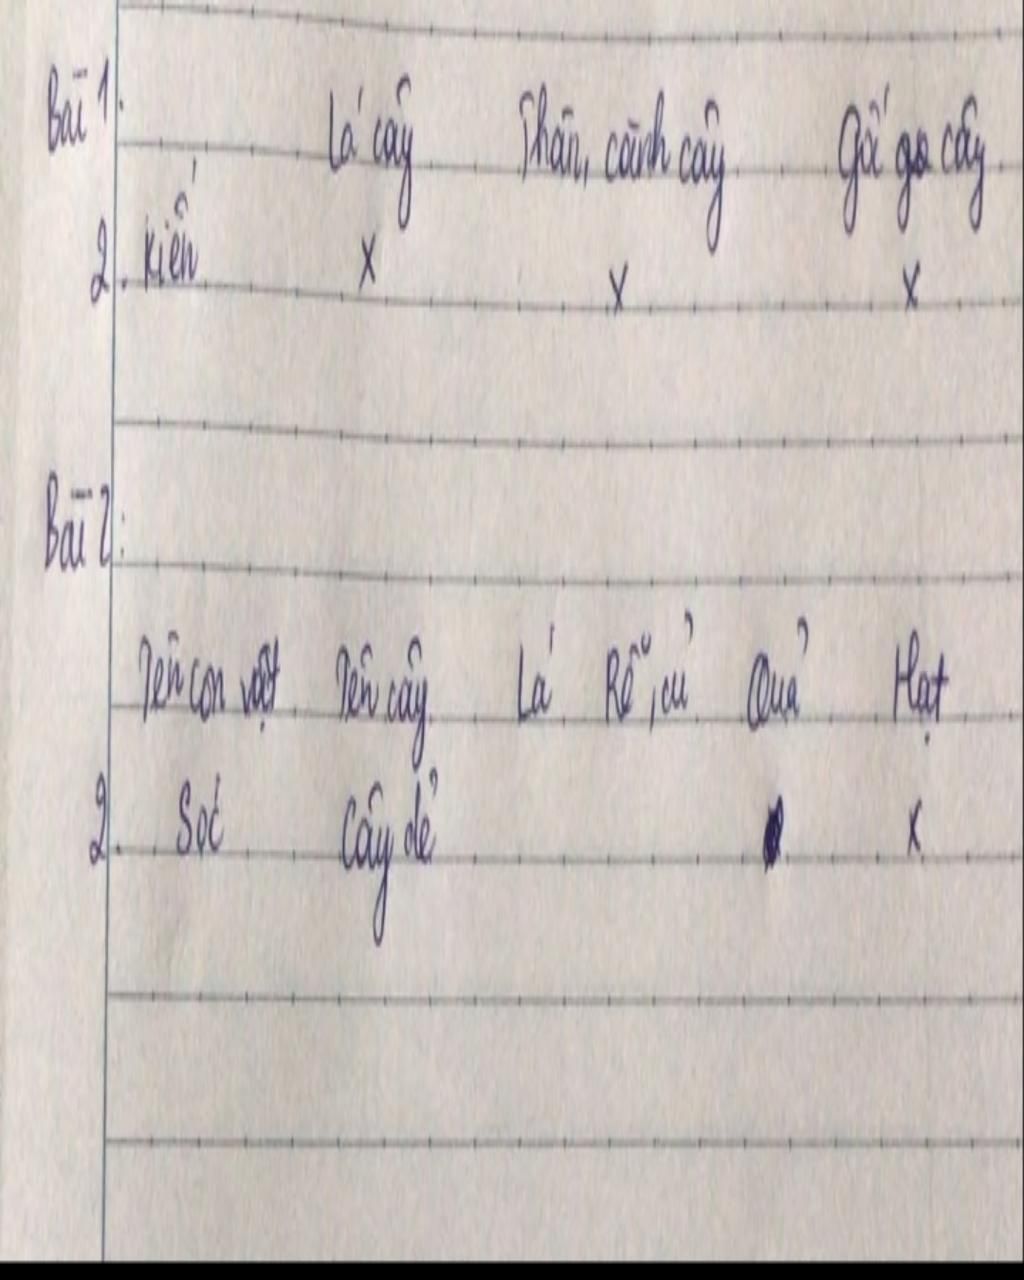 Bài 1.
Lá cây Thân, cành cây Gố cây
2. Kiến x x x
Bài 2:
Tên con vật Tên cây Lá Rễ, củ Quả Hạt
2. Sóc Cây dẻ x